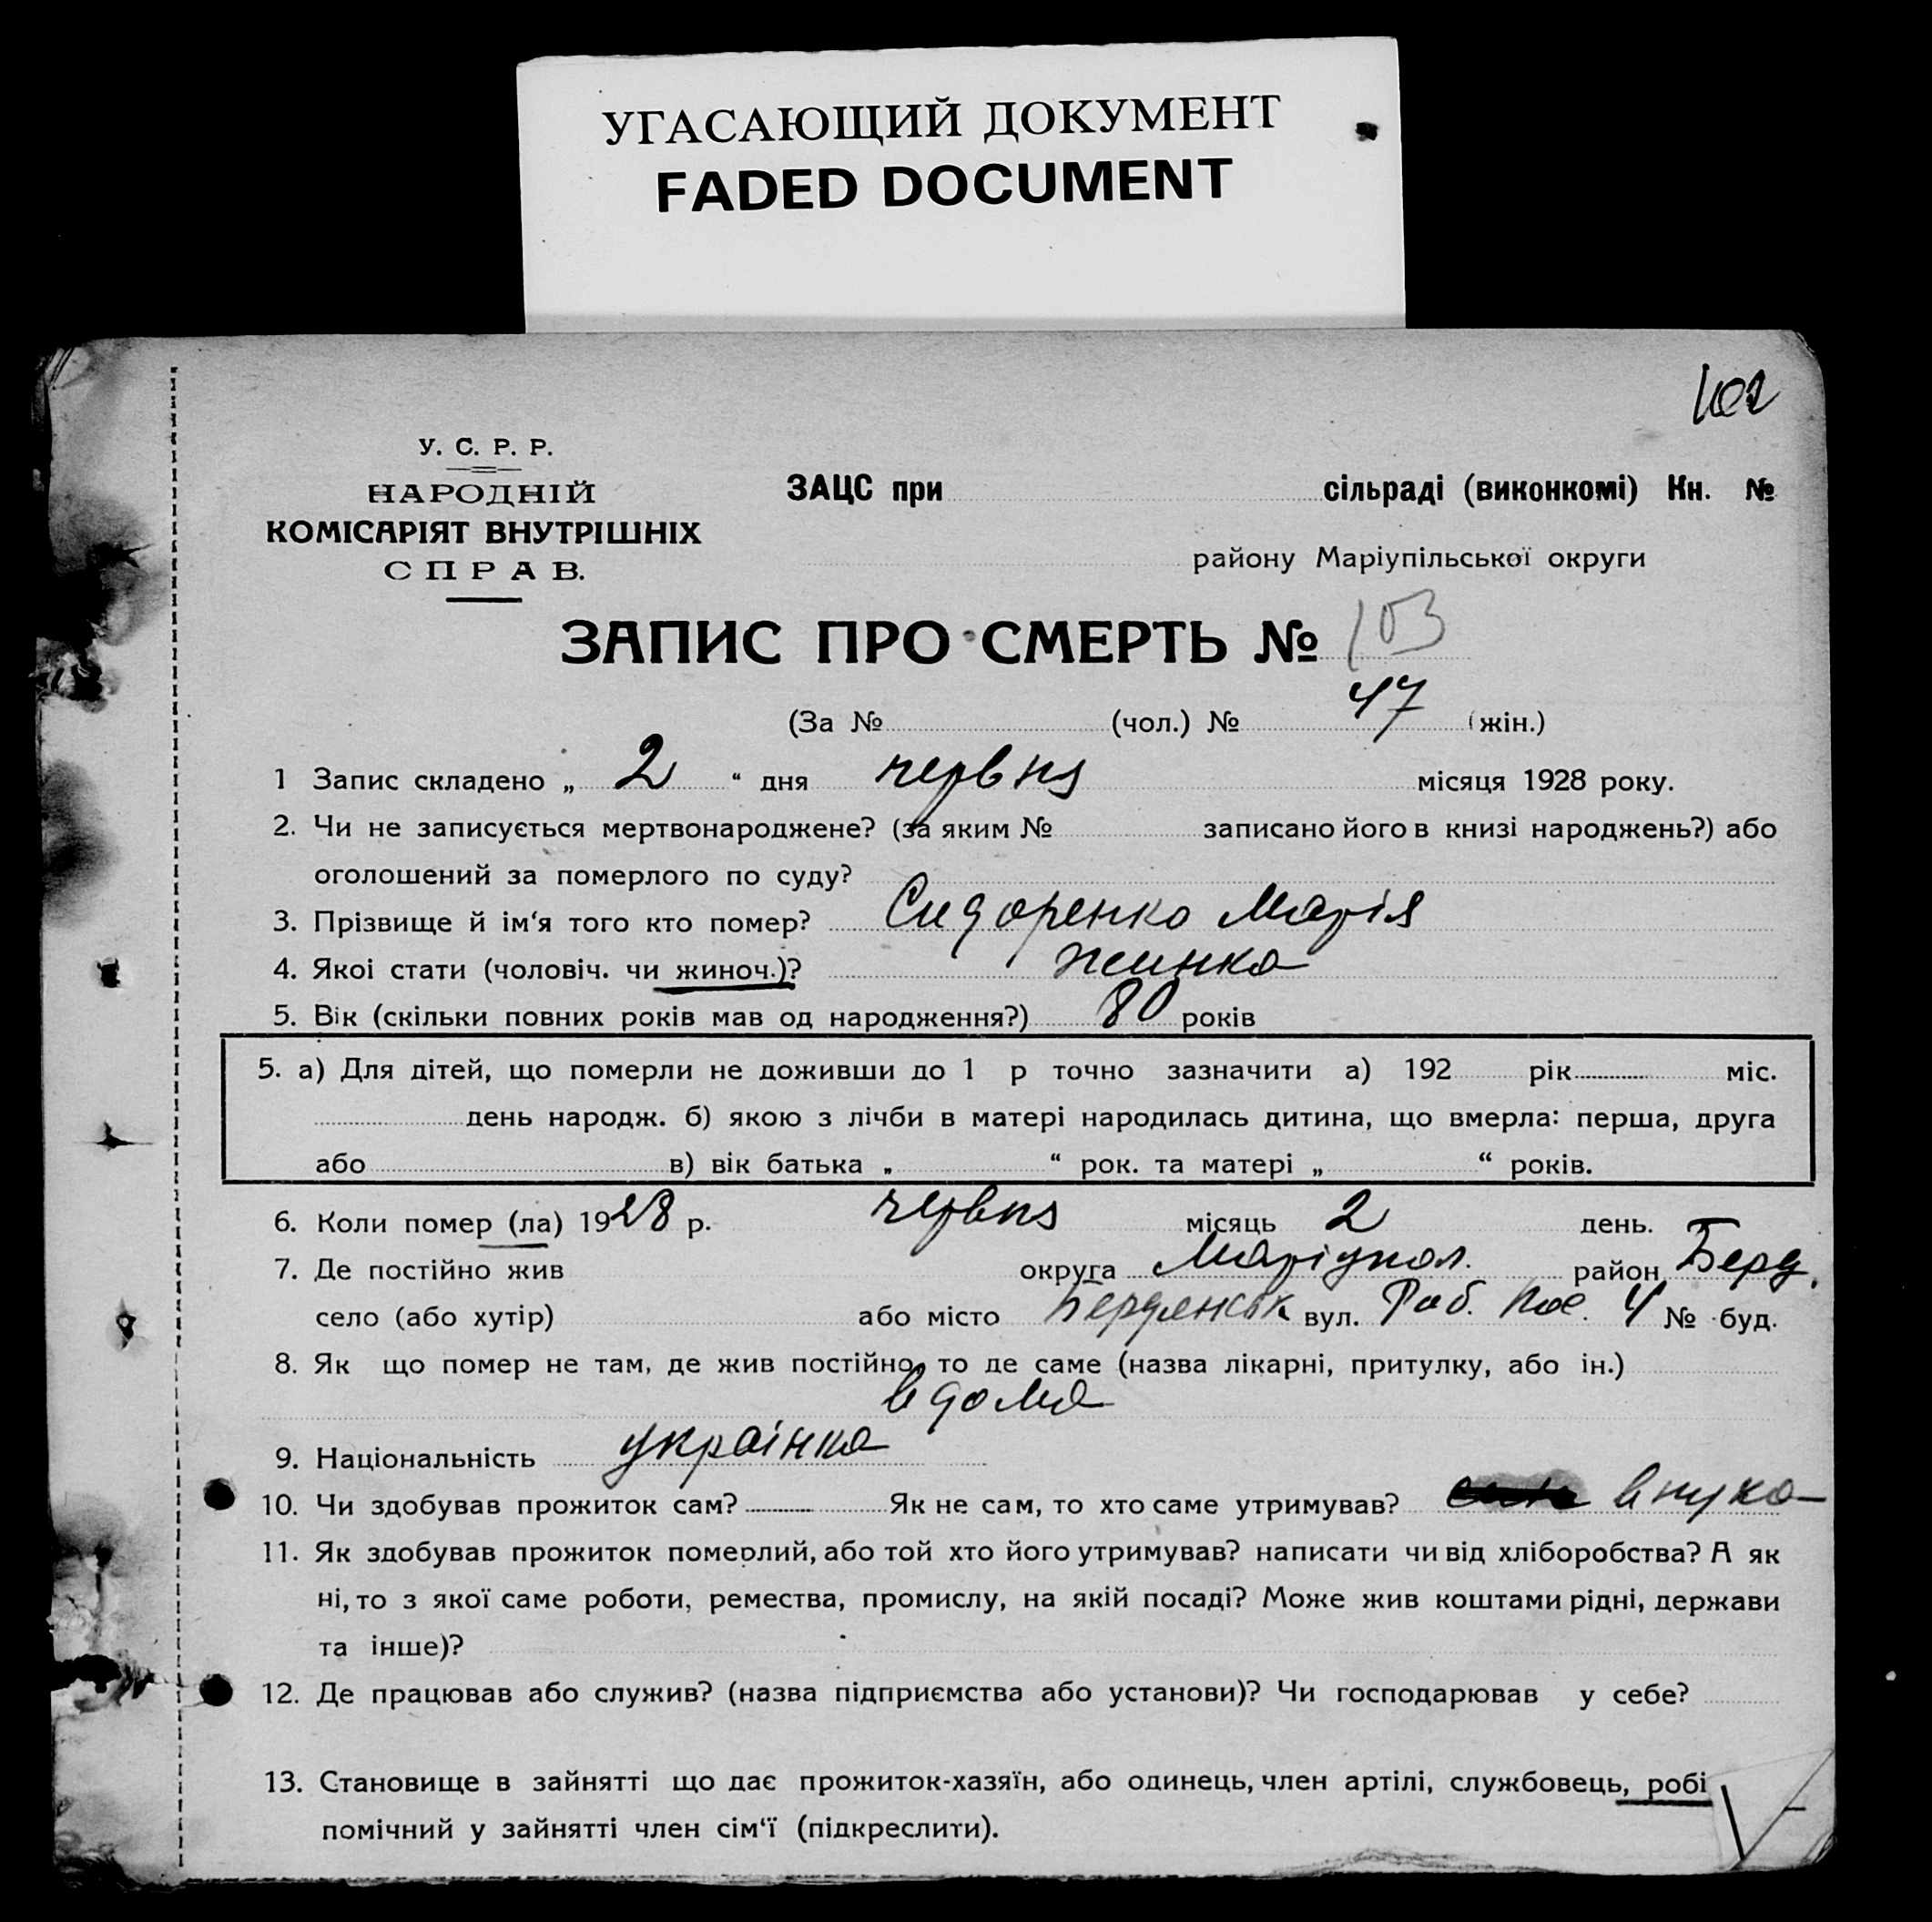 УГАСАЮЩИЙ ДОКУМЕНТ
FADED DOCUMENT
102
У. С. Р. Р.
НАРОДНІЙ
КОМІСАРІЯТ ВНУТРІШНІХ
СПРАВ.
ЗАЦС при сільраді (виконкомі) Кн. №
району Маріупільської округи
ЗАПИС ПРО СМЕРТЬ № 103
(За № (чол.) № 47 (жін.)
1 Запис складено „ 2 “ дня червня місяця 1928 року.
2. Чи не записується мертвонароджене? (за яким № записано його в книзі народжень?) або
оголошений за померлого по суду?
3. Прізвище й ім‘я того кто помер? Сидоренко Марія
4. Якоі стати (чоловіч. чи жиноч.)? жинка
5. Вік (скільки повних років мав од народження?) 80 років
5. а) Для дітей, що померли не доживши до 1 р точно зазначити а) 192 рік міс.
день народж. б) якою з лічби в матері народилась дитина, що вмерла: перша, друга
або в) вік батька „ “ рок. та матері „ “ років.
6. Коли помер (ла) 1928 р. червня місяць 2 день.
7. Де постійно жив округа Маріупол. район Берд.
село (або хутір) або місто Бердянськ вул. Раб. Пос. 4 № буд.
8. Як що помер не там, де жив постійно, то де саме (назва лікарні, притулку, або ін.)
вдома
9. Національність українка
10. Чи здобував прожиток сам? Як не сам, то хто саме утримував? внука
11. Як здобував прожиток померлий, або той хто його утримував? написати чи від хліборобства? А як
ні, то з якої саме роботи, ремества, промислу, на якій посаді? Може жив коштами рідні, держави
та інше)?
12. Де працював або служив? (назва підприємства або установи)? Чи господарював у себе?
13. Становище в зайнятті що дає прожиток-хазяїн, або одинець, член артілі, службовець, робі
помічний у зайнятті член сім‘ї (підкреслити).